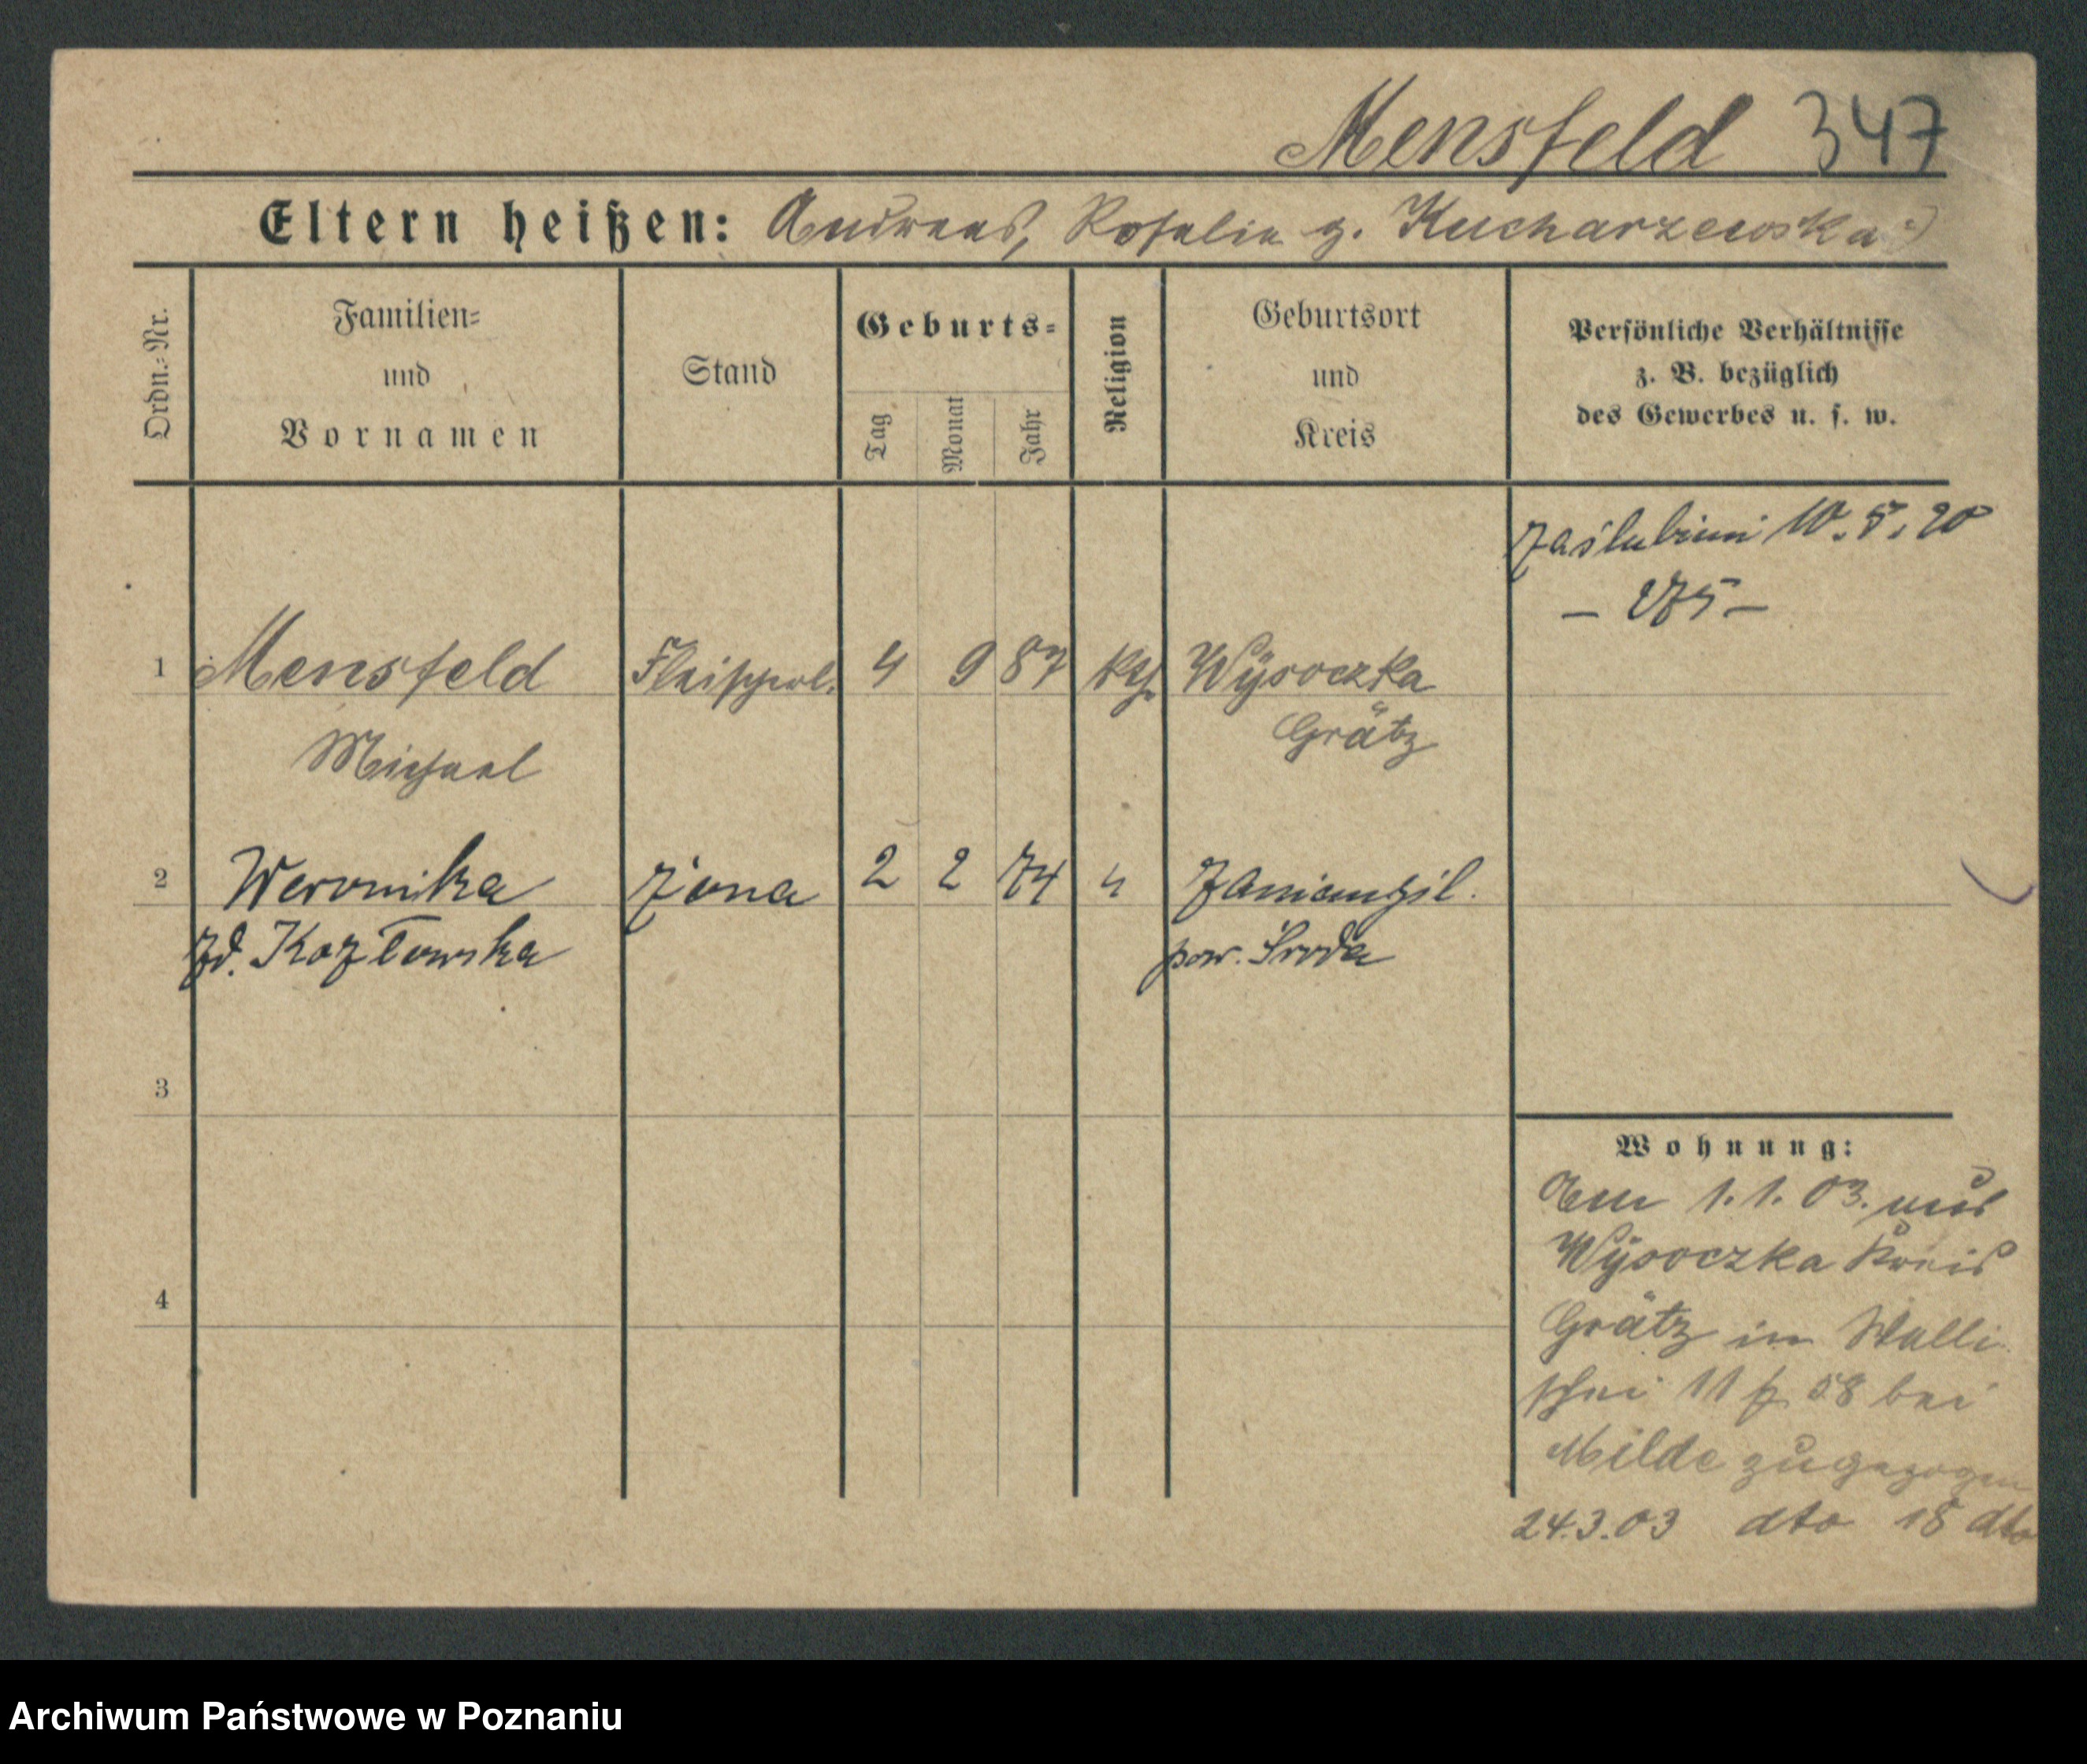 Mensfeld 347
Eltern heißen: Andreas, Rosalie g. Kucharzewska
Ordn.-Nr.
Familien-
und
Vornamen
Stand
Geburts-
Tag
Monat
Jahr
Religion
Geburtsort
und
Kreis
Persönliche Verhältnisse
z. B. bezüglich
des Gewerbes u. s. w.
Zaślubieni 10. 5. 20
– 275 –
1 Mensfeld Fleischerl. 4 9 87 kth Wÿsoczka
Grätz
Michael
2 Weronika żona 2 2 74 " Zaniemyśl.
zd. Kozłowska pow. Środa
3
4
Wohnung:
Am 1.1.03. aus
Wÿsoczka Kreis
Grätz in Walli-
schei 11 58 bei
Milde zugezogen
24.3.03 dto 18 dto
Archiwum Państwowe w Poznaniu